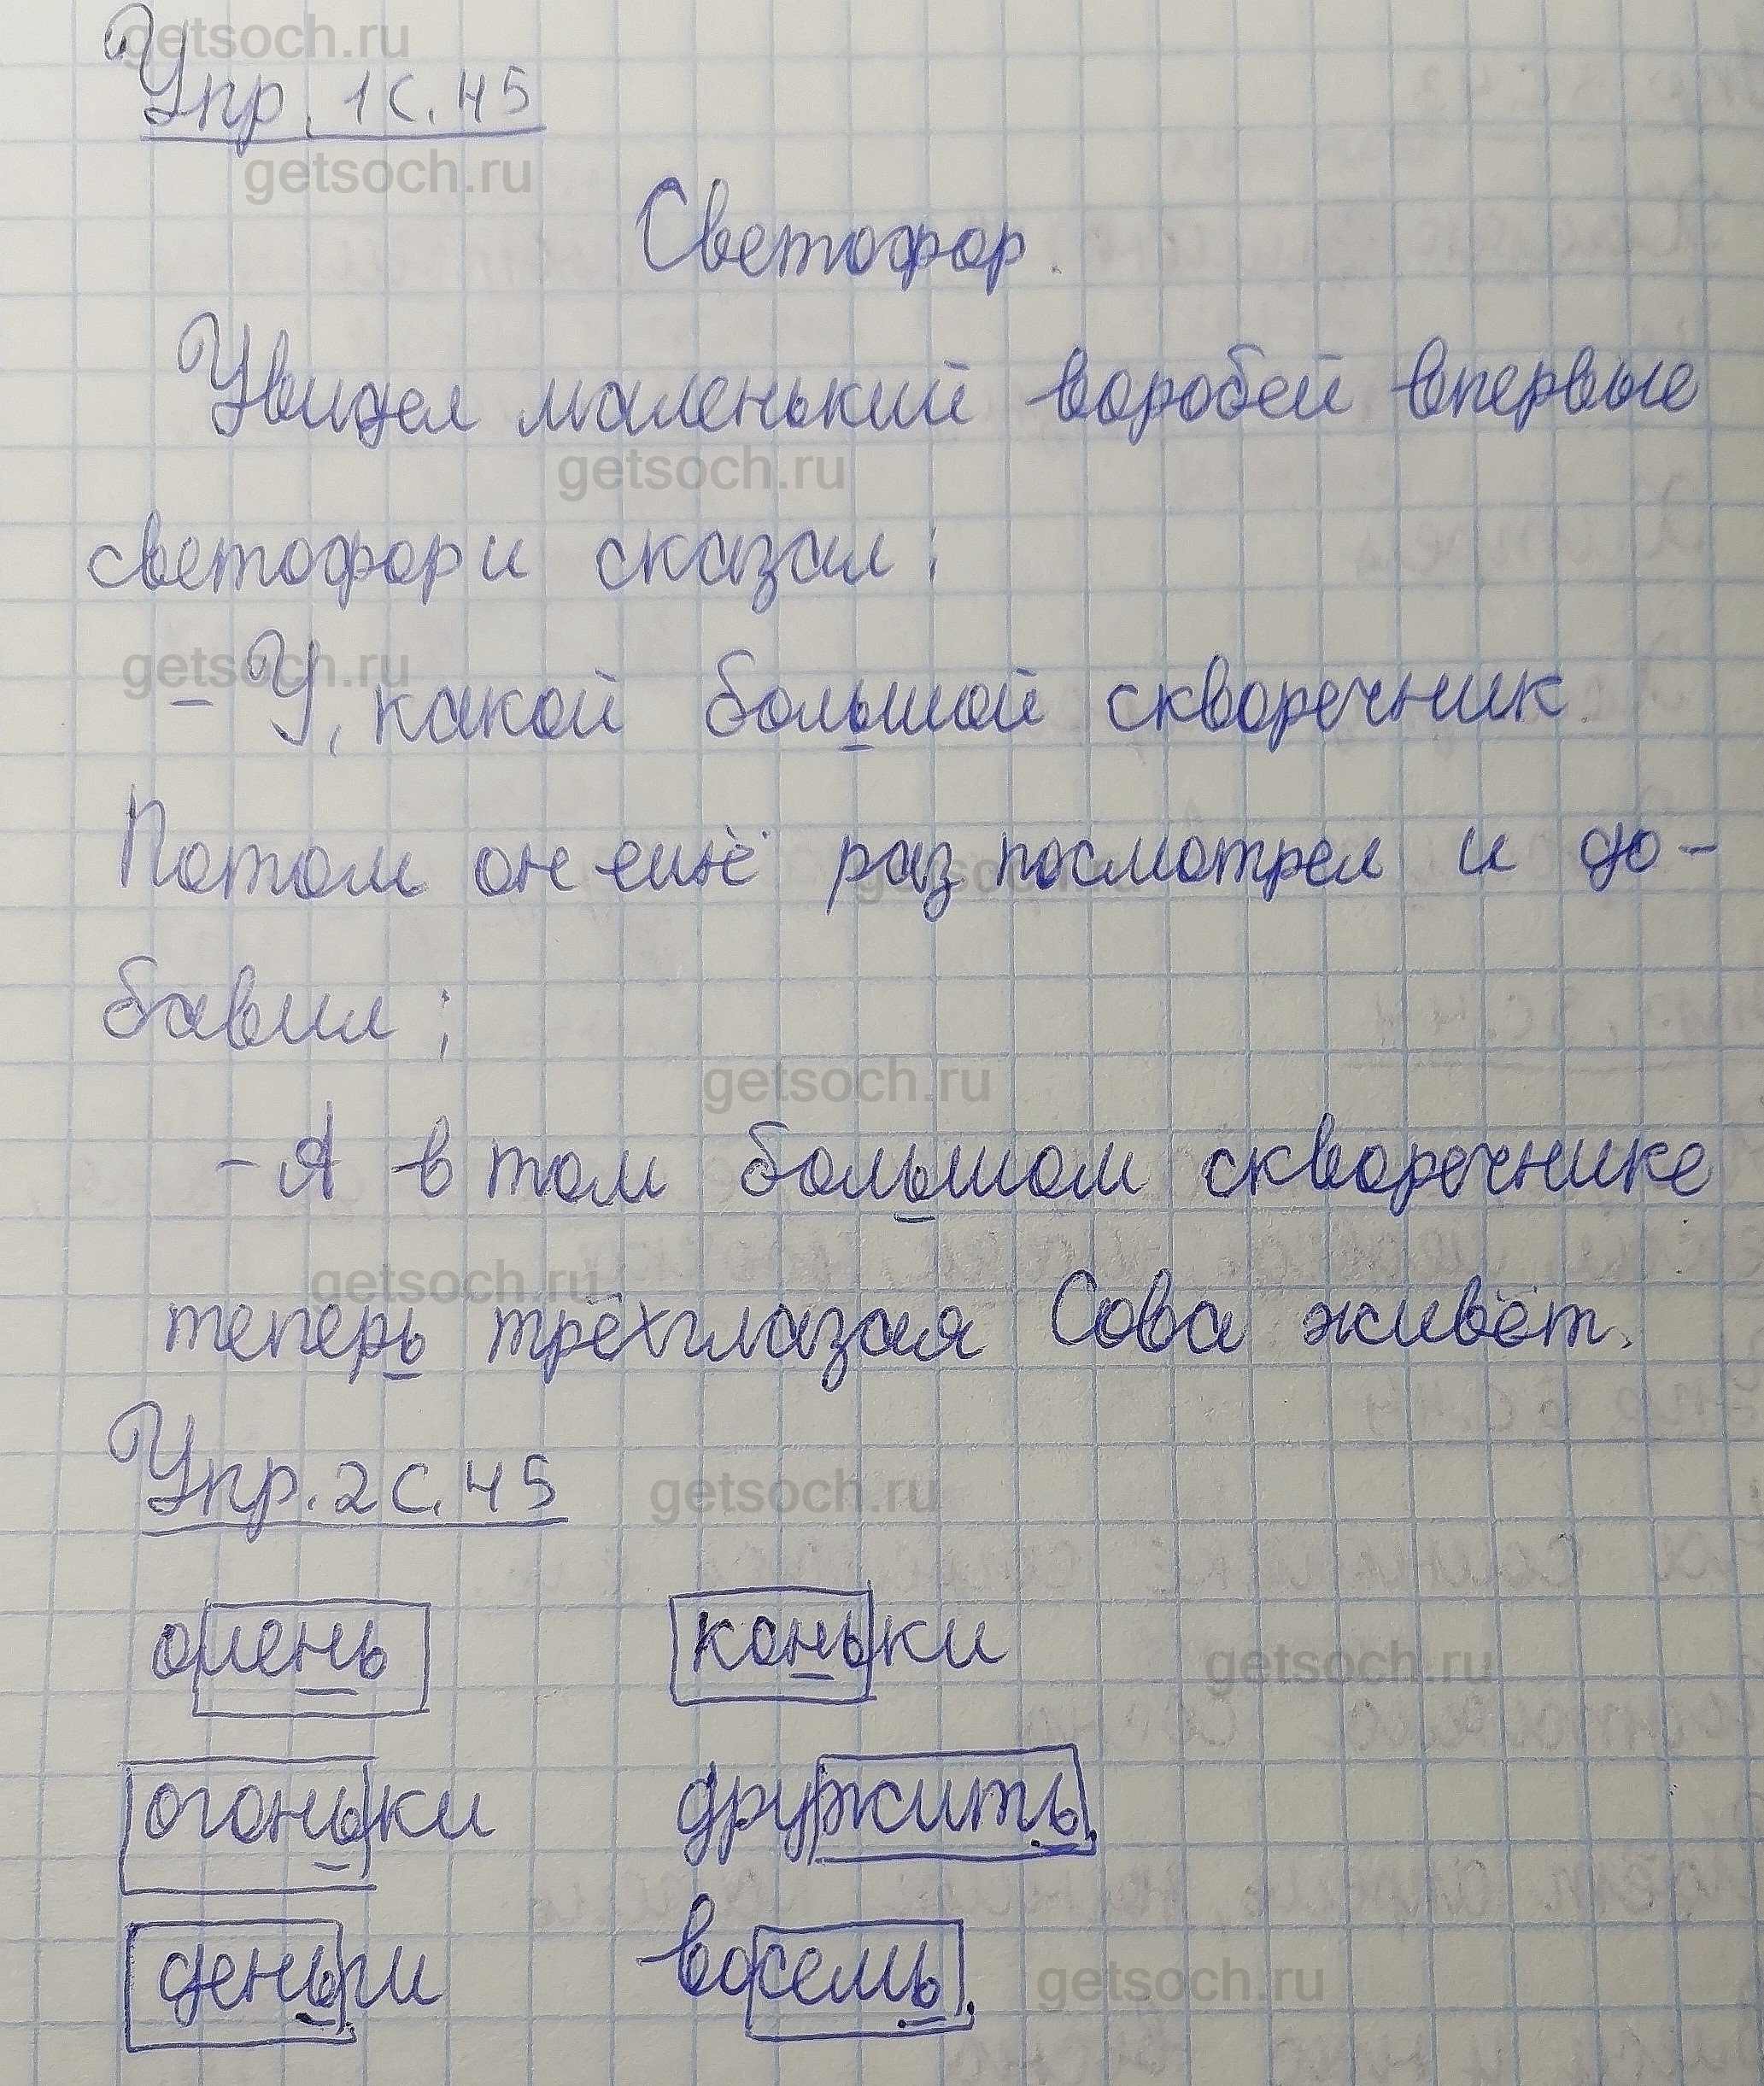 getsoch.ru
Упр. 1 с. 45
getsoch.ru
Светофор.
Увидел маленький воробей впервые
getsoch.ru
светофор и сказал:
getsoch.ru
- У, какой большой скворечник
Потом он ещё раз посмотрел и до-
getsoch.ru
бавил:
getsoch.ru
- А в том большом скворечнике
getsoch.ru
теперь трёхглазая Сова живёт.
Упр. 2 с. 45
getsoch.ru
олень коньки
getsoch.ru
огоньки дружить
деньги восемь
getsoch.ru